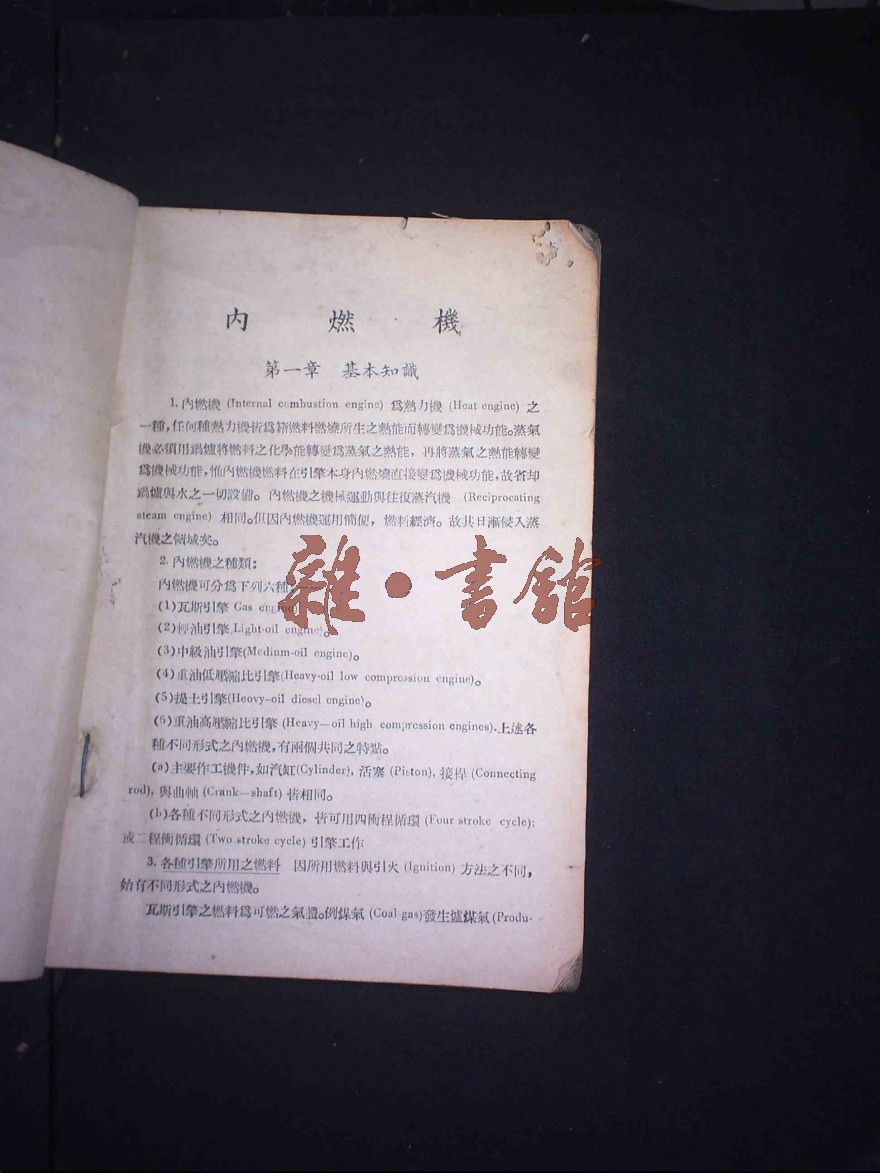 內 燃 機
第一章 基本知識
1. 內燃機 (Internal combustion engine) 爲熱力機 (Heat engine) 之
一種，任何種熱力機皆爲藉燃料燃燒所生之熱能而轉變爲機械功能。蒸氣
機必須用鍋爐將燃料之化學能轉變爲蒸氣之熱能，再將蒸氣之熱能轉變
爲機械功能，惟內燃機燃料在引擎本身內燃燒直接變爲機械功能，故省却
鍋爐與水之一切設備。內燃機之機械運動與往復蒸汽機 (Reciprocating
steam engine) 相同。但因內燃機運用簡便，燃料經濟。故其日漸侵入蒸
汽機之領域矣。
2. 內燃機之種類：
內燃機可分爲下列六種
(1)瓦斯引擎 Gas engine
(2)輕油引擎 Light-oil engine)。
(3)中級油引擎(Medium-oil engine)。
(4)重油低壓縮比引擎(Heavy-oil low compression engine)。
(5)提士引擎(Heovy-oil diesel engine)。
(6)重油高壓縮比引擎 (Heavy—oil high compression engines).上述各
種不同形式之內燃機，有兩個共同之特點。
(a)主要作工機件，如汽缸(Cylinder), 活塞 (Piston), 接桿 (Connecting
rod), 與曲軸 (Crank—shaft) 皆相同。
(b)各種不同形式之內燃機，皆可用四衝程循環 (Four stroke cycle);
或二程衝循環 (Two stroke cycle) 引擎工作
3. 各種引擎所用之燃料 因所用燃料與引火 (Ignition) 方法之不同，
始有不同形式之內燃機。
瓦斯引擎之燃料爲可燃之氣體。例煤氣 (Coal gas)發生爐煤氣 (Produ-
雜·書館